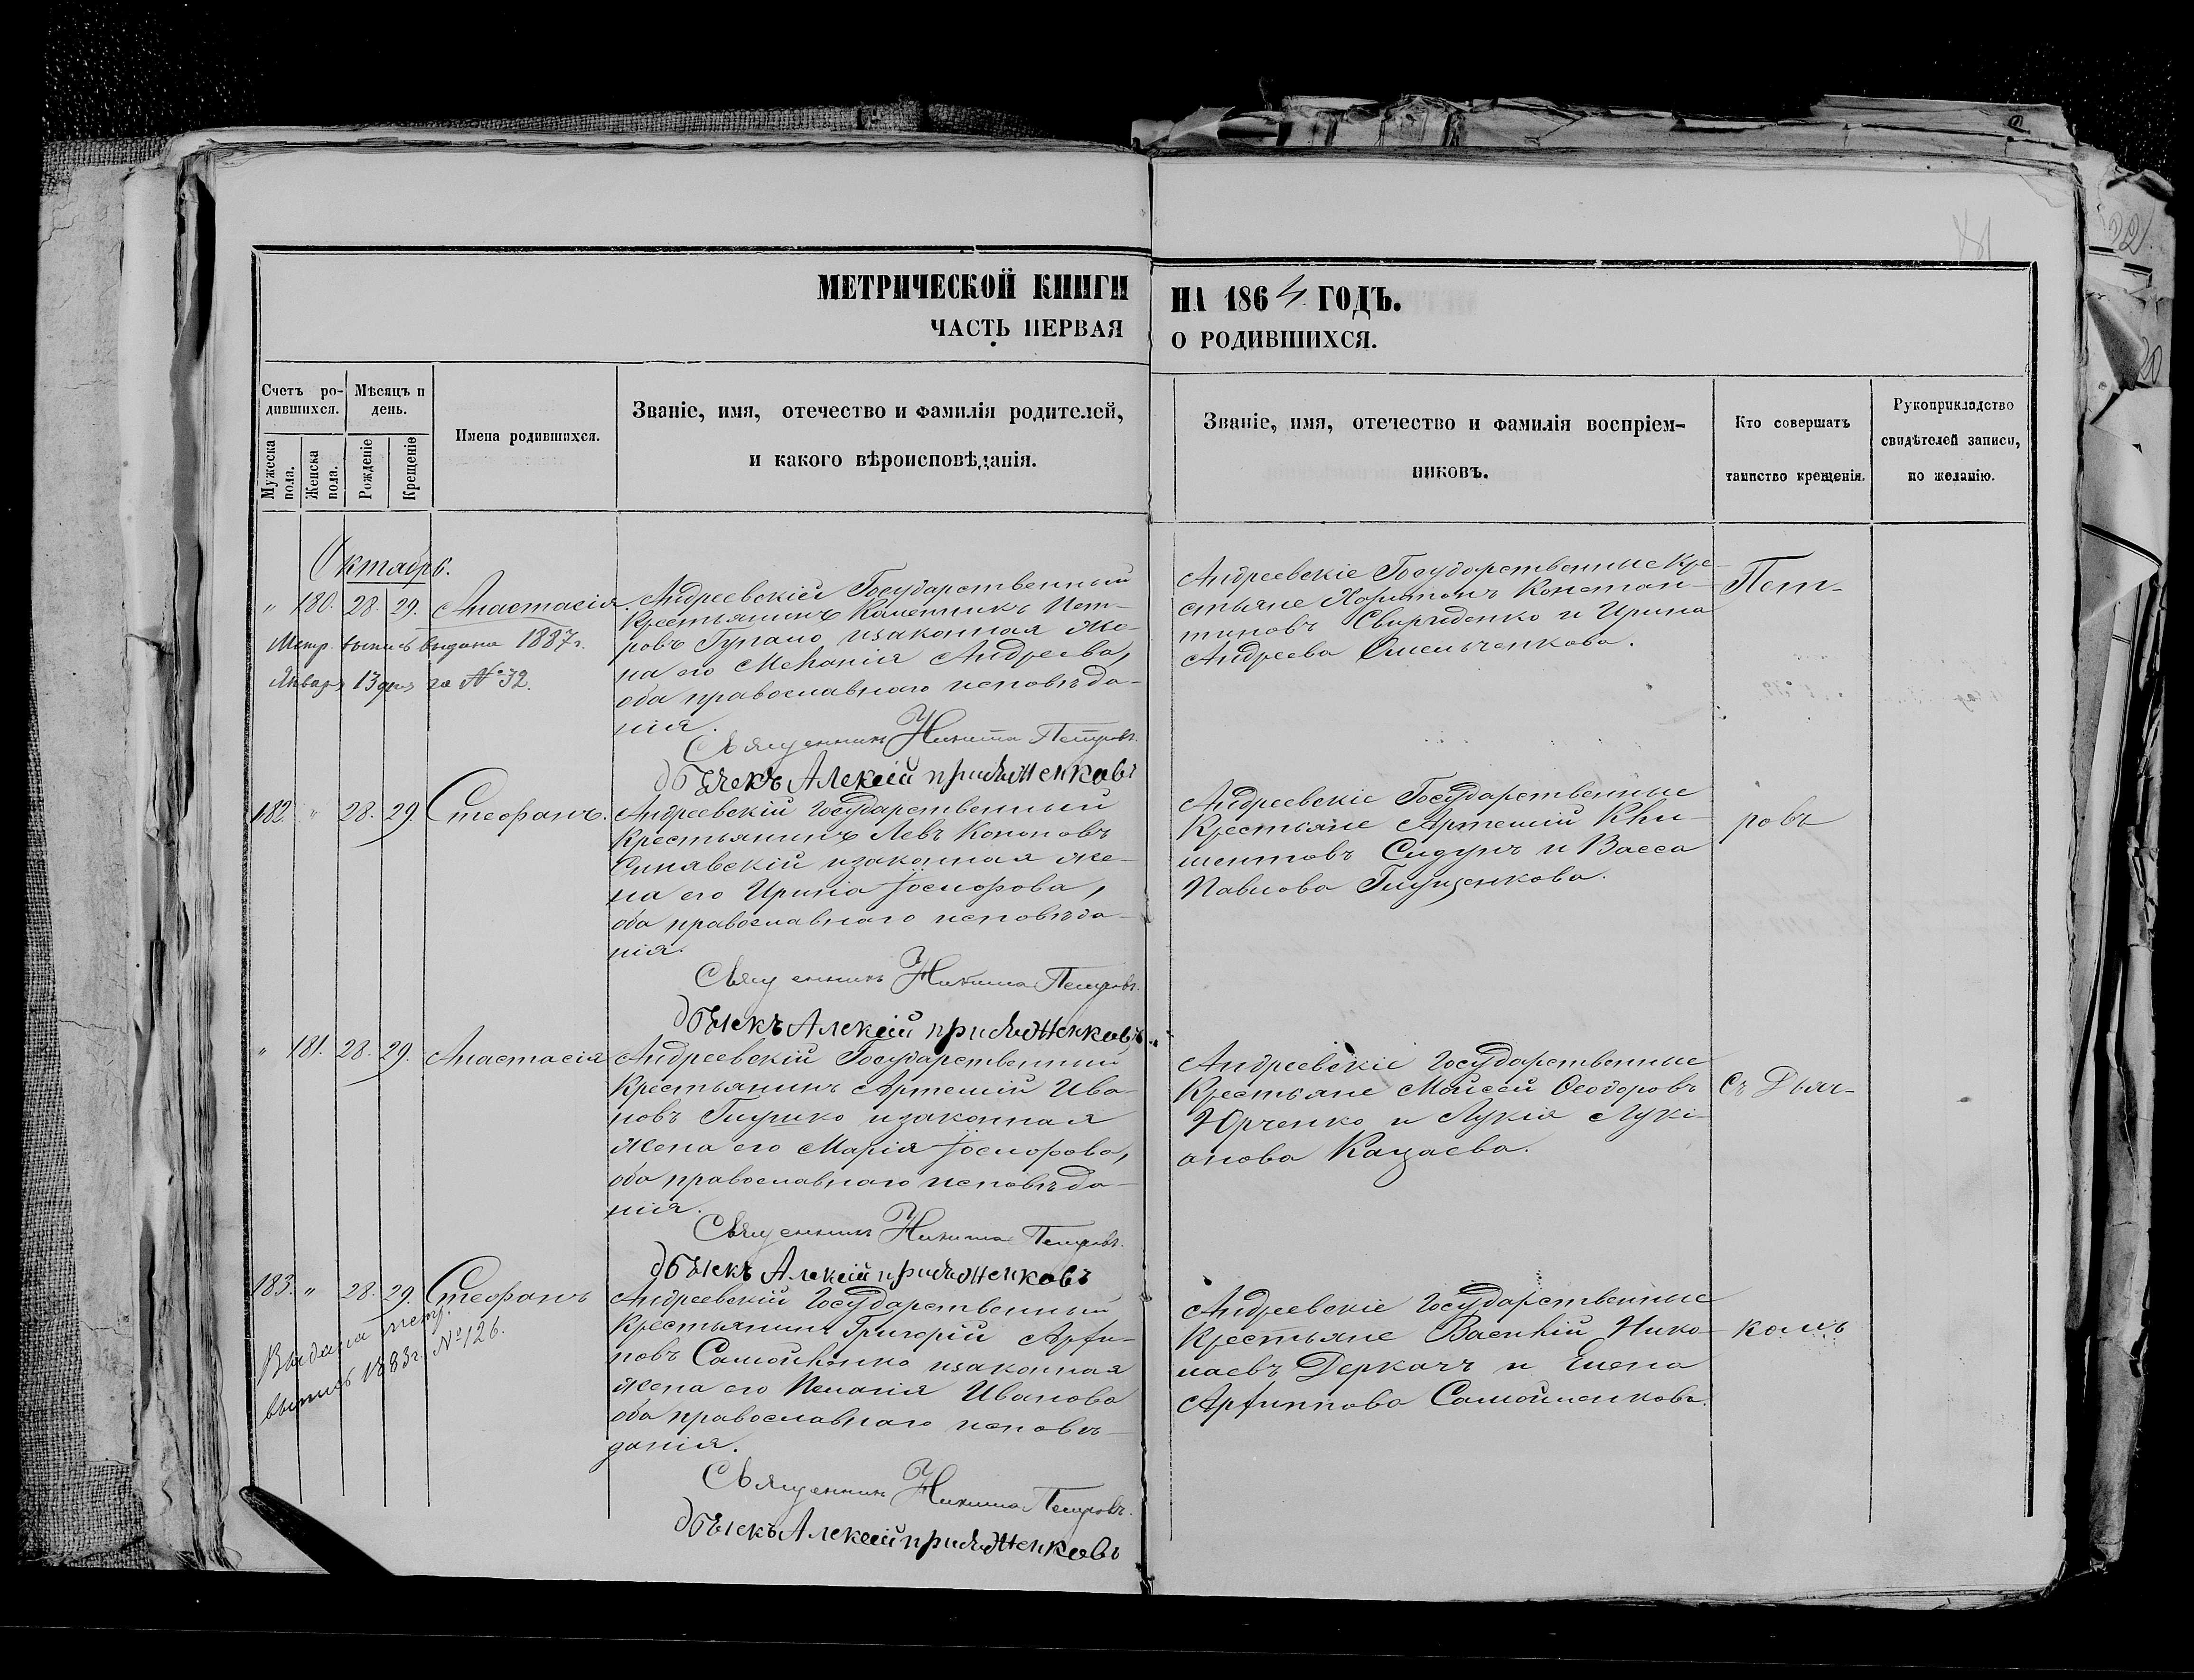 МЕТРИЧЕСКОЙ КНИГИ
НА 1864 ГОДЪ.
ЧАСТЬ ПЕРВАЯ
О РОДИВШИХСЯ.
Счетъ ро-
дившихся.
Мѣсяцъ и
день.
Мужеска
пола.
Женска
пола.
Рожденіе
Крещеніе
Имена родившихся.
Званіе, имя, отечество и фамилія родителей,
и какого вѣроисповѣданія.
Званіе, имя, отечество и фамилія воспріем-
никовъ.
Кто совершалъ
таинство крещенія.
Рукоприкладство
свидѣтелей записи,
по желанію.
Октябрь.
" 180. 28. 29. Анастасія.
Метр. выпись выдана 1887 г.
Января 13 дня за № 32.
Андреевскій Государственный
Крестьянинъ Каленникъ Пет-
ровъ и законная же-
на его Меланія Андреева,
оба православнаго исповѣда-
нія.
Священникъ Никита Петровъ.
дьячекъ Алексій
Андреевскіе Государственные Кре-
стьяне Харитонъ Констан-
тиновъ Свириденко и Ирина
Андреева Омельченкова.
Пет-
182. " 28. 29. Стефанъ.
Андреевскій Государственный
Крестьянинъ Левъ Кононовъ
Синявскій и законная же-
на его Ирина
оба православнаго исповѣда-
нія.
Священникъ Никита Петровъ.
дьячекъ Алексій
Андреевскіе Государственные
Крестьяне Артемій Кли-
ментовъ Сидунъ и Васса
Павлова Глущенкова.
ровъ
" 181. 28. 29. Анастасія
Андреевскій Государственный
Крестьянинъ Артемій Ива-
новъ и законная
жена его Марія
оба православнаго исповѣда-
нія.
Священникъ Никита Петровъ.
дьячекъ Алексій
Андреевскіе Государственные
Крестьяне Мойсей Ѳеодоровъ
Юрченко и Лукія Лукі-
анова Кацаева.
съ Дьяч-
183. " 28. 29. Стефанъ
Выдана метр.
выпись 1883 г. № 126.
Андреевскій Государственный
Крестьянинъ Григорій Архи-
повъ Самойленко и законная
жена его Пелагія Иванова
оба православнаго исповѣ-
данія.
Священникъ Никита Петровъ.
дьячекъ Алексій
Андреевскіе Государственные
Крестьяне Василій Нико-
лаевъ Деркачъ и Елена
Архиппова Самойленкова.
комъ